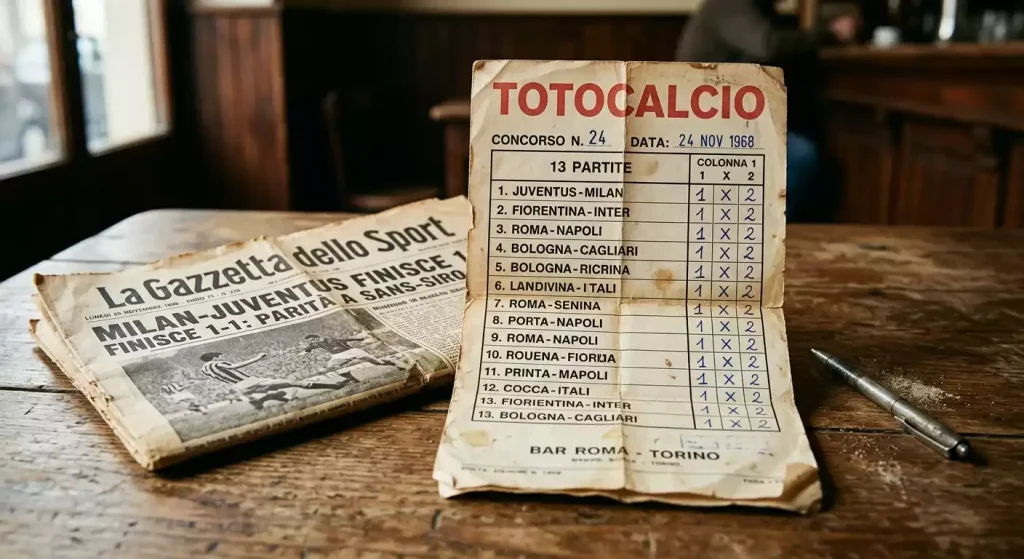 La Gazzetta dello Sport
MILAN-JUVENTUS FINISCE 1
FINISCE 1-1: PARITÀ A SANS-SIRO
TOTOCALCIO
CONCORSO N. 24 DATA: 24 NOV 1968
13 PARTITE COLONNA 1
1 X 2
1. JUVENTUS-MILAN 1 X 2
2. FIORENTINA-INTER 1 X 2
3. ROMA-NAPOLI 1 X 2
4. BOLOGNA-CAGLIARI 1 X 2
5. BOLOGNA-RICRINA 1 X 2
6. LANDIVINA-ITALI 1 X 2
7. ROMA-SENINA 1 X 2
8. PORTA-NAPOLI 1 X 2
9. ROMA-NAPOLI 1 X 2
10. ROUENA-FIORIJA 1 X 2
11. PRINTA-MAPOLI 1 X 2
12. COCCA-ITALI 1 X 2
13. FIORIENTINA-INTER 1 X 2
13. BOLOGNA-CAGLIARI 1 X 2
BAR ROMA - TORINO